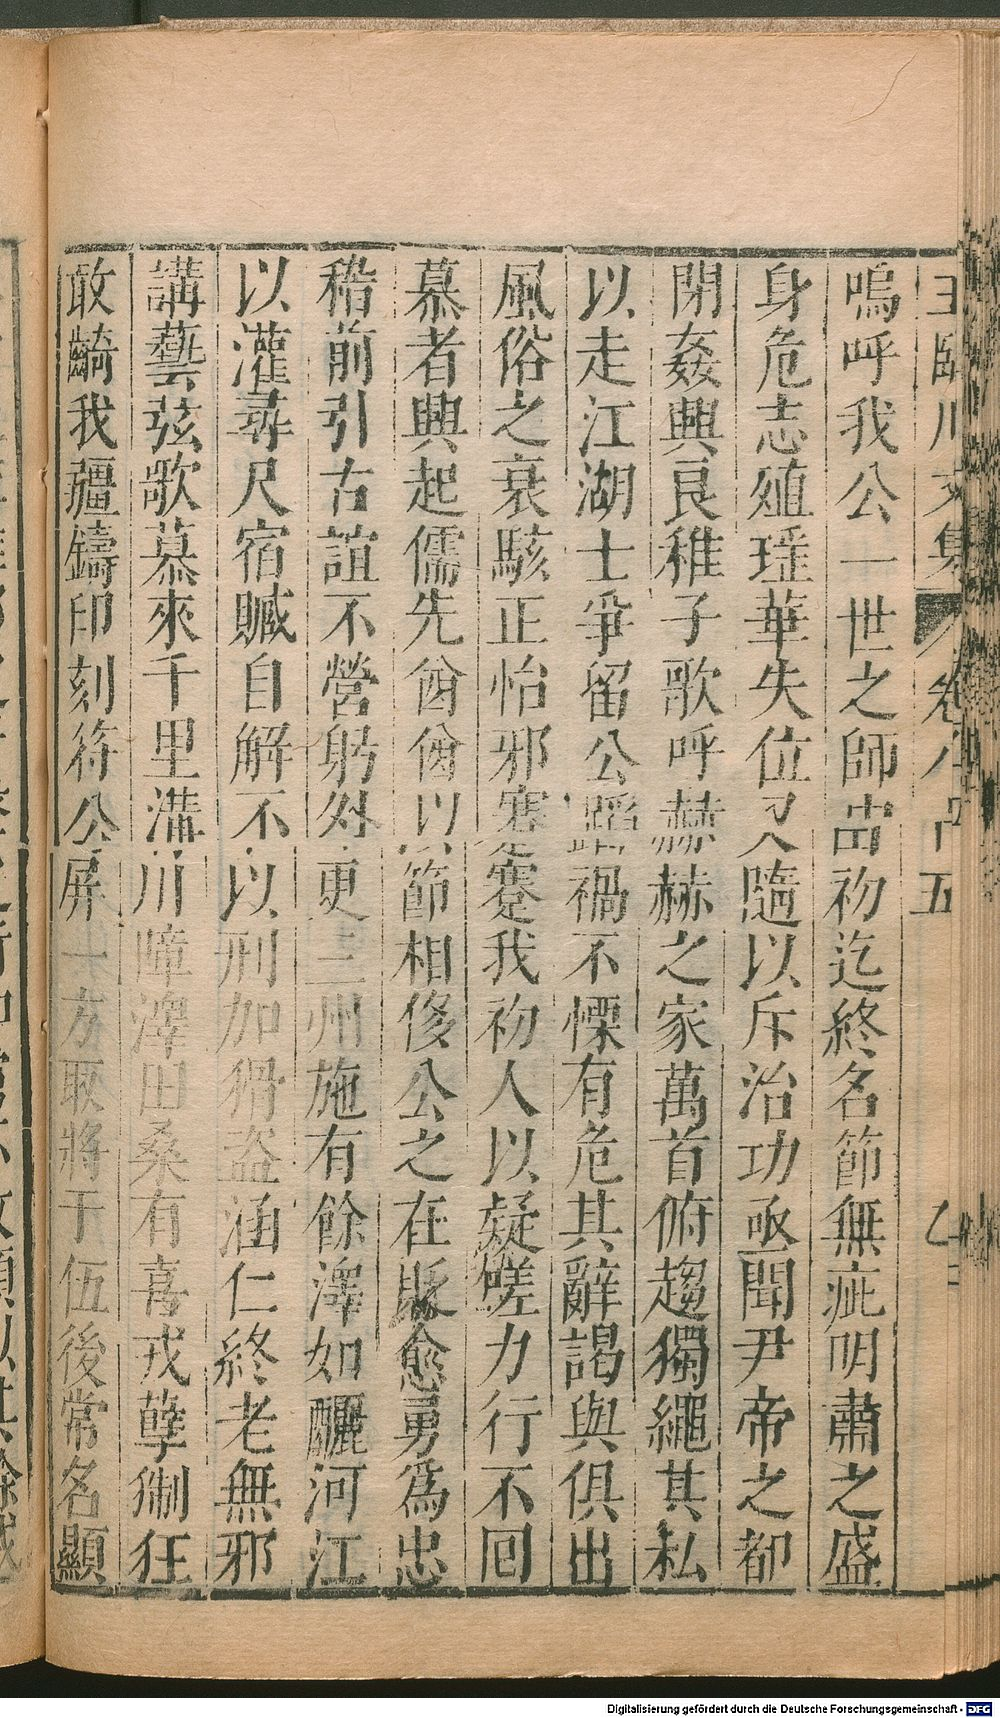 王臨川文集 卷八十五
嗚呼我公一世之師由初迄終名節無疵明肅之盛
身危志殖瑤華失位又隨以斥治功亟聞尹帝之都
閉姦興良稚子歌呼赫赫之家萬首俯趨獨繩其私
以走江湖士爭留公蹈禍不慄有危其辭謁與俱出
風俗之衰駭正怡邪蹇蹇我初人以疑嗟力行不回
慕者興起儒先酋酋以節相侈公之在貶愈勇為忠
稽前引古誼不營躬外更三州施有餘澤如釃河江
以灌尋尺宿贓自解不以刑加猾盜涵仁終老無邪
講藝弦歌慕來千里溝川障澤田桑有喜戎孽猘狂
敢齮我疆鑄印刻符公屏一方取將于伍後常名顯
Digitalisierung gefördert durch die Deutsche Forschungsgemeinschaft - DFG